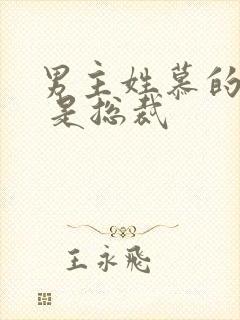 男主姓慕的
是总裁
王永飛